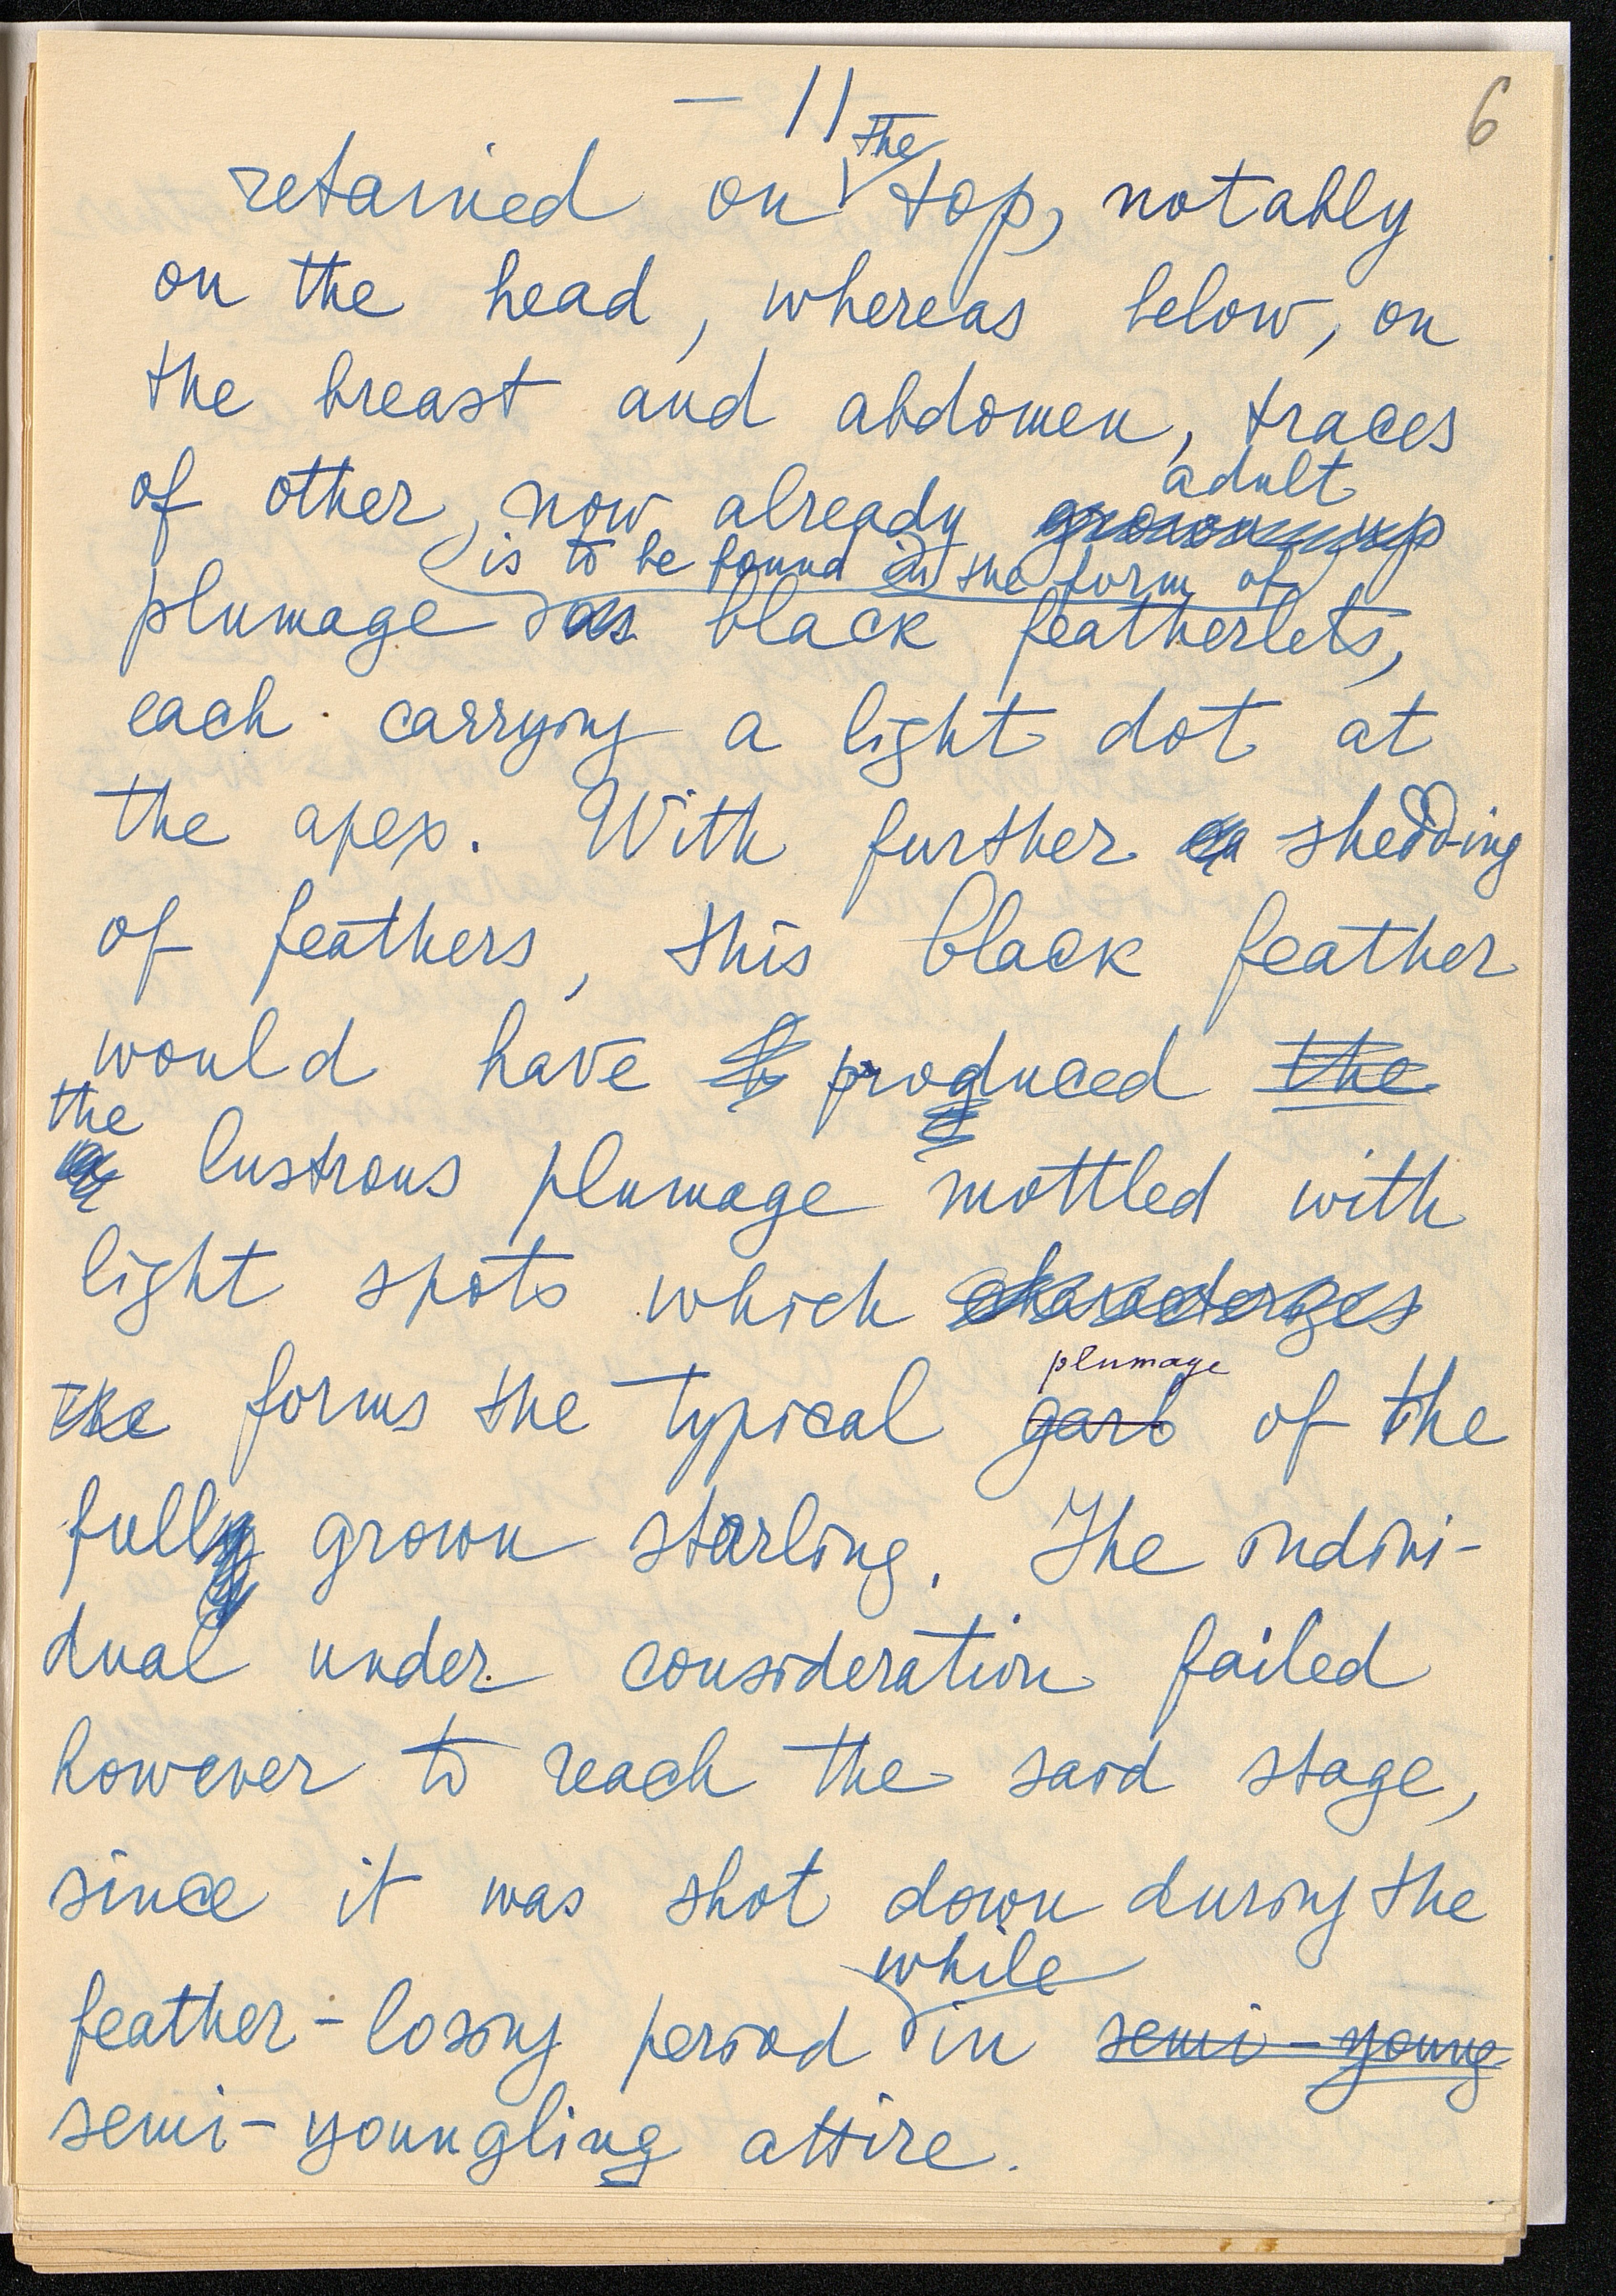 — 11
6
the
retained on top, notably
on the head, whereas below, on
the breast and abdomen, traces
adult
of other, now already grown up
is to be found in the form of
plumage as black featherlets,
each carrying a light dot at
the apex. With further shedding
of feathers, this black feather
would have produced the
the
lustrous plumage mottled with
light spots which characterizes
plumage
the forms the typical garb of the
fully grown starling. The indivi-
dual under consideration failed
however to reach the said stage,
since it was shot down during the
while
feather-losing period in semi-young
semi-youngling attire.